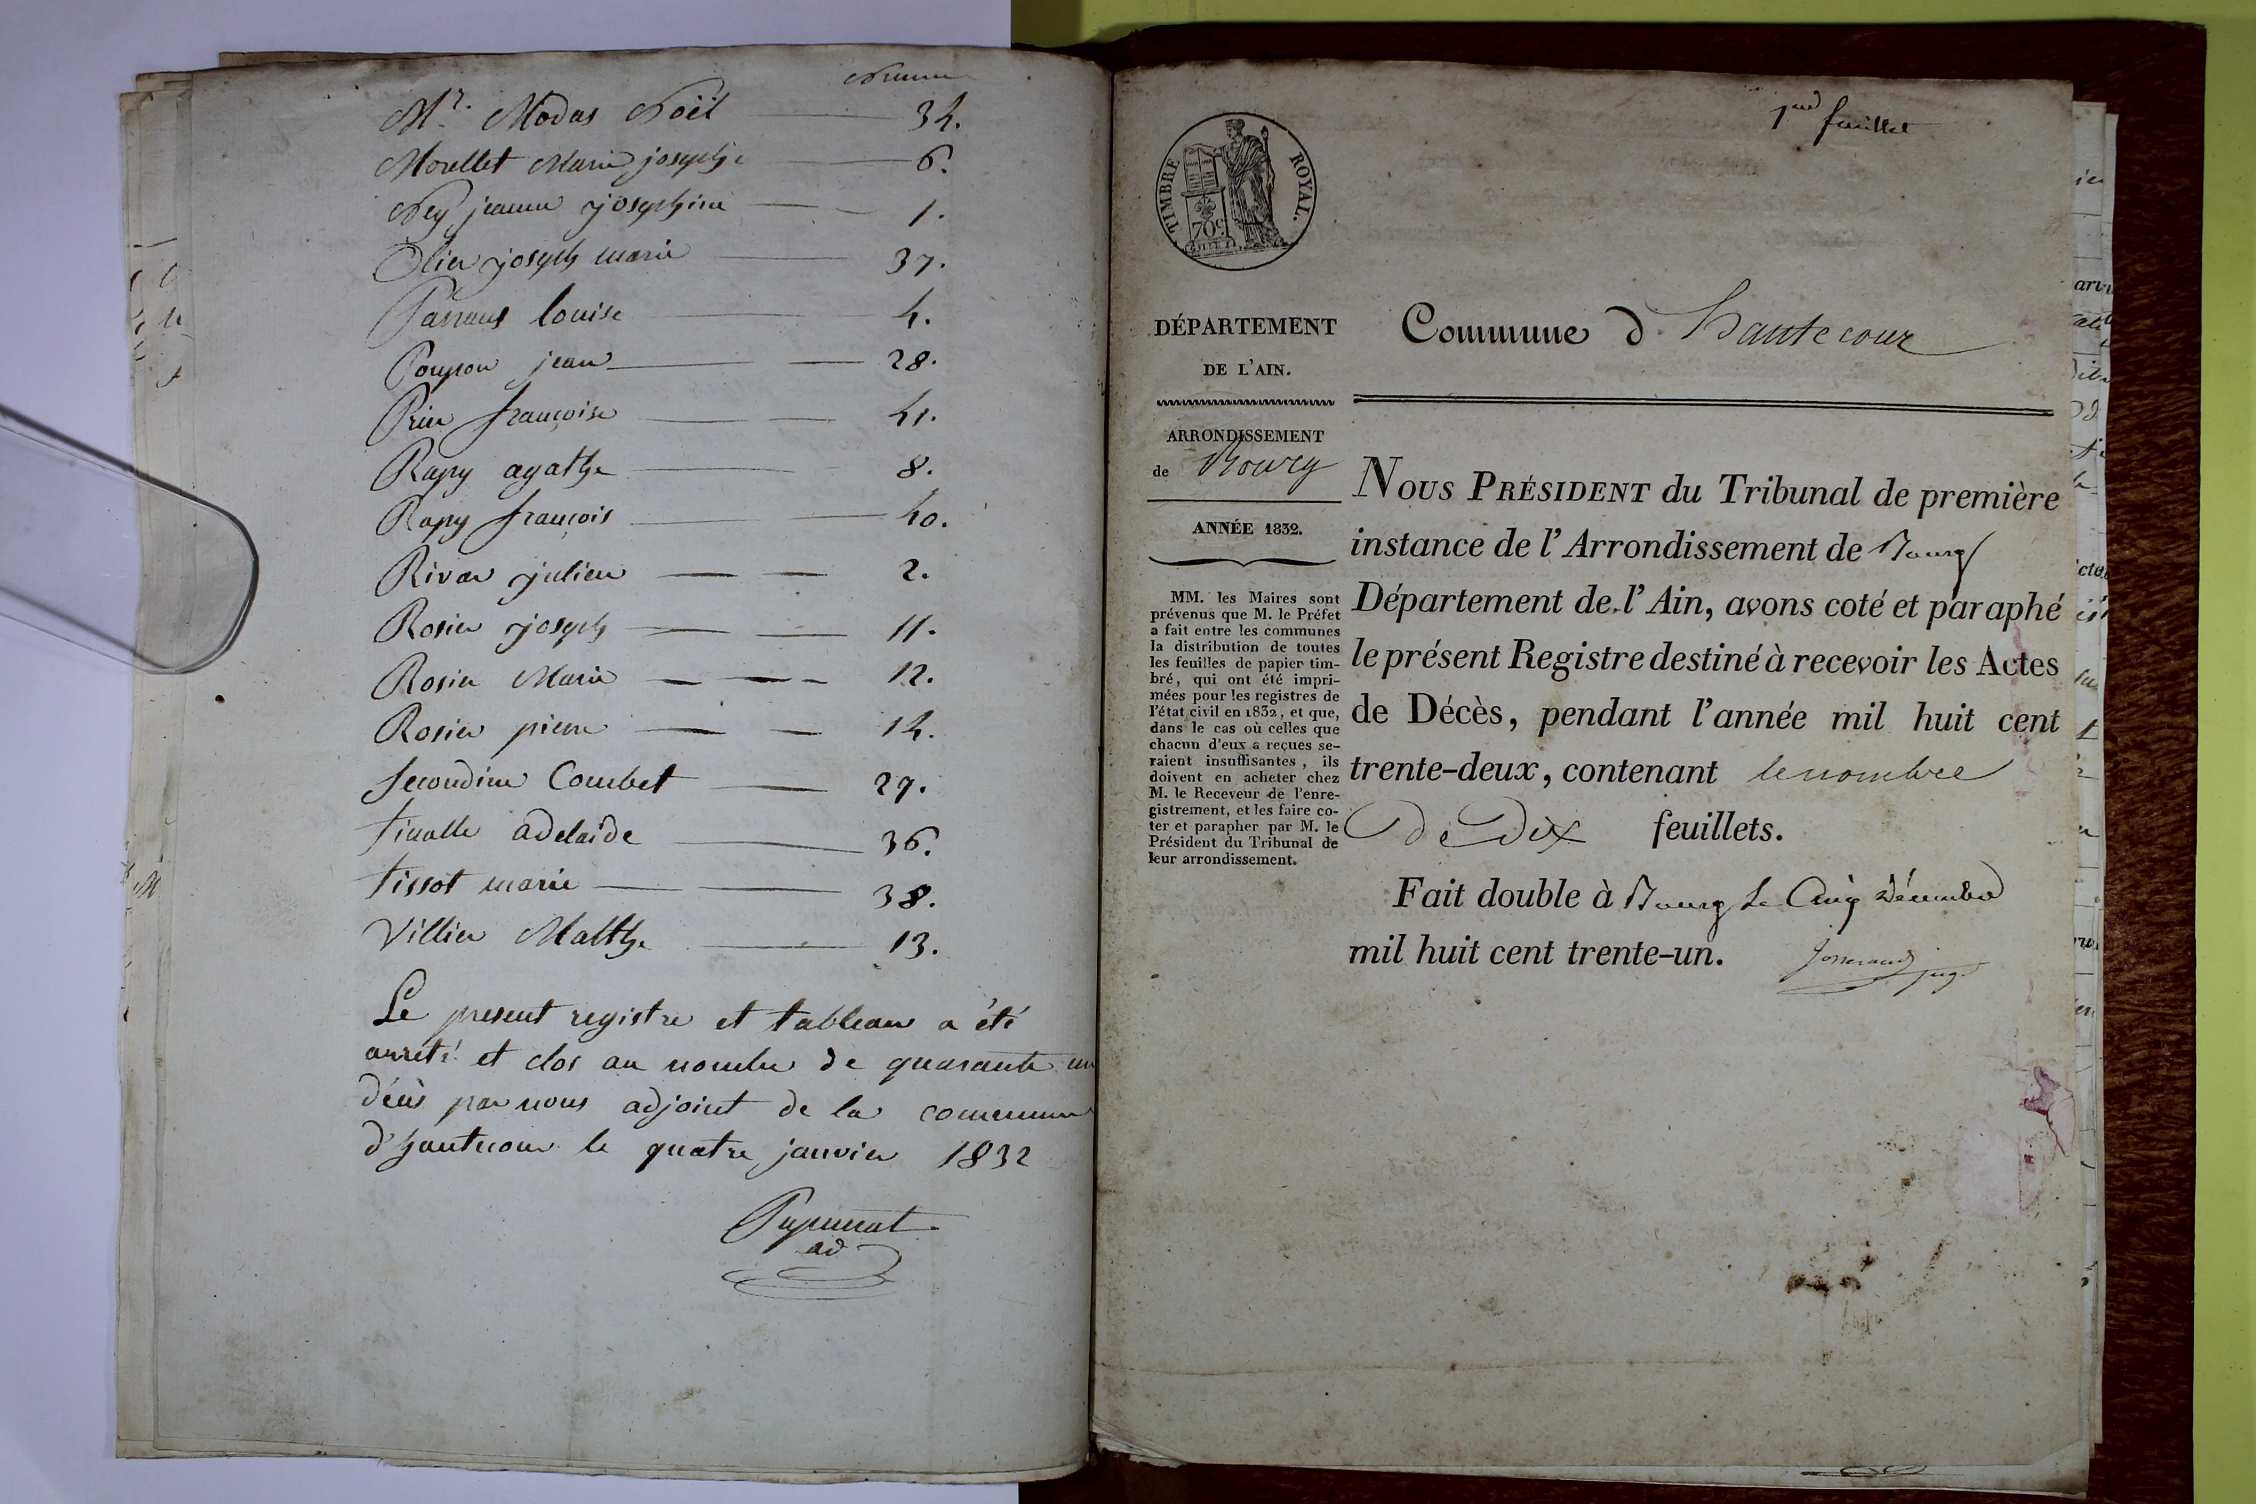 Numero
Mr. Modas Noël 34.
Morellet Marie josephe 6.
Ney jeanne josephine 1.
Olier joseph marie 37.
louise 4.
Poupon jean 28.
Prin françoise 41.
Rapy agathe 8.
Rapy françois 40.
julien 2.
Rosier joseph 11.
Rosier Marie 12.
Rosier pierre 14.
Secondine Combet 29.
adelaïde 36.
tissot marie 38.
Villier 13.
Le present registre et tableau a été
arreté et clos au nombre de quarante un
décès par nous adjoint de la commune
d'hautecour le quatre janvier 1832
ad
feuillet
TIMBRE ROYAL.
70c
DÉPARTEMENT
DE L'AIN.
Commune d. hautecour
ARRONDISSEMENT
de Bourg
ANNÉE 1832.
MM. les Maires sont
prévenus que M. le Préfet
a fait entre les communes
la distribution de toutes
les feuilles de papier tim-
bré, qui ont été impri-
mées pour les registres de
l'état civil en 1832, et que,
dans le cas où celles que
chacun d'eux a reçues se-
raient insuffisantes, ils
doivent en acheter chez
M. le Receveur de l'enre-
gistrement, et les faire co-
ter et parapher par M. le
Président du Tribunal de
leur arrondissement.
NOUS PRÉSIDENT du Tribunal de première
instance de l'Arrondissement de Bourg
Département de l'Ain, avons coté et paraphé
le présent Registre destiné à recevoir les Actes
de Décès, pendant l'année mil huit cent
trente-deux, contenant le nombre
de Dix feuillets.
Fait double à Bourg Le Cinq Décembre
mil huit cent trente-un.
Josserand juge